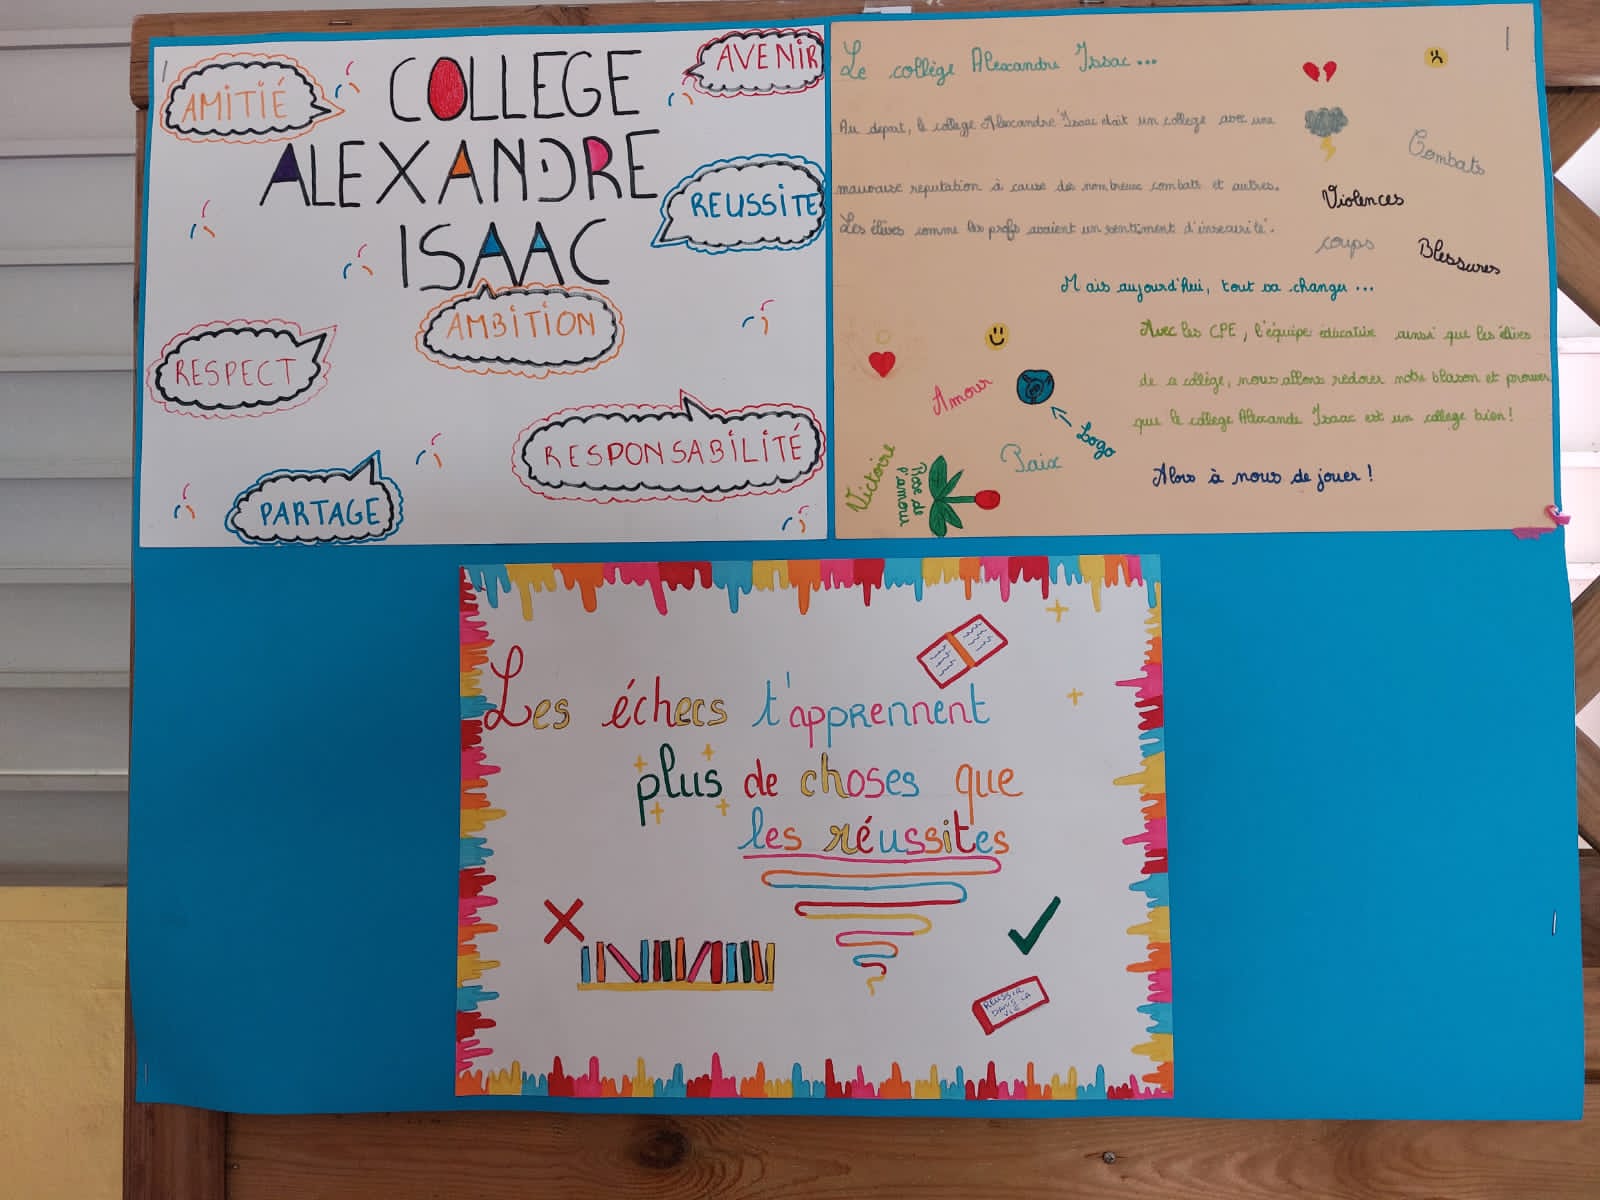 COLLEGE
ALEXANDRE
ISAAC
AMITIÉ
AVENIR
REUSSITE
AMBITION
RESPECT
RESPONSABILITÉ
PARTAGE
Le collège Alexandre Issac...
Au depart, le collège Alexandre Issac était un college avec une
mauvaise reputation à cause des nombreux combats et autres.
Les élèves comme les profs avaient un sentiment d'insecurité.
Combats
Violences
coups
Blessures
Mais aujourd'hui, tout va changer...
Avec les CPE, l'équipe éducative ainsi que les élèves
de ce collège, nous allons redorer notre blason et prouver
que le collège Alexandre Issac est un college bien!
Alors à nous de jouer!
Amour
Logo
Paix
Victoire
Rose de
l'amour
Les échecs t'apprennent
plus de choses que
les réussites
REUSSIR
DANS LA
VIE